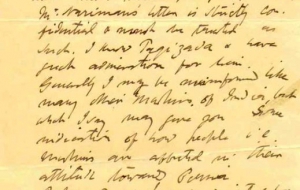 Mr Nariman's letter is strictly con-
fidential & must be treated as
such. I know Pirzada & have
great admiration for him.
Generally I may be misinformed like
many other Muslims of India, but
what I say may give you some
indication of how people i.e
Muslims are affected in their
attitude toward